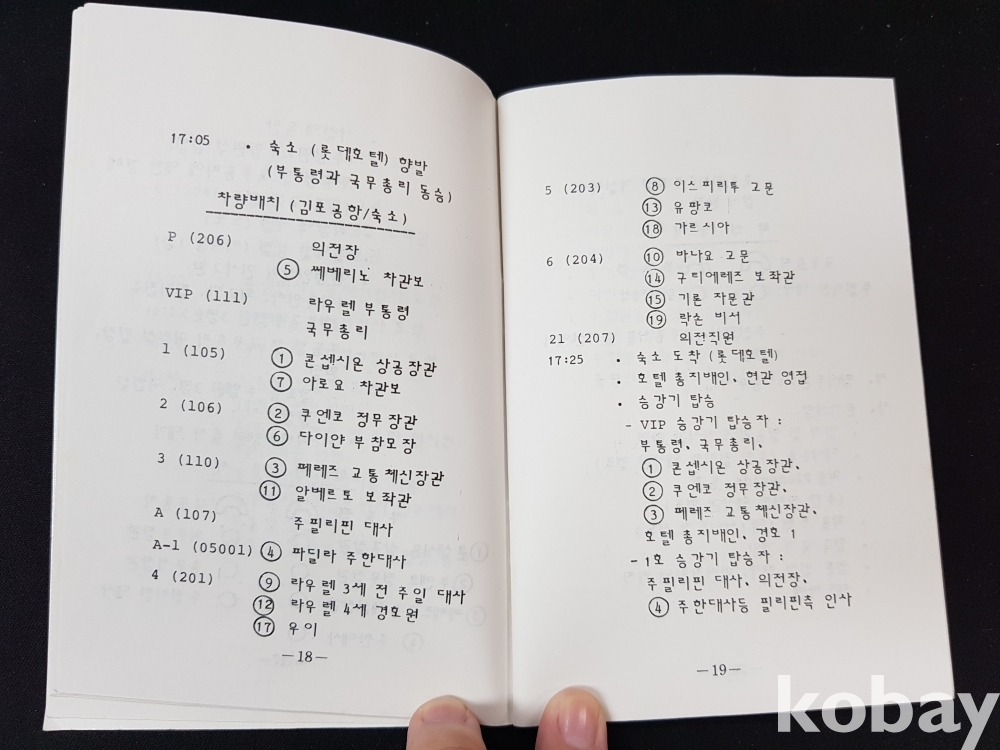 17:05 · 숙소 (롯데호텔) 향발
(부통령과 국무총리 동승)
차량배치 (김포공항/숙소)
P (206) 의전장
⑤ 쎄베리노 차관보
VIP (111) 라우렐 부통령
국무총리
1 (105) ① 콘셉시온 상공장관
⑦ 아로요 차관보
2 (106) ② 쿠엔코 정무장관
⑥ 다이얀 부참모장
3 (110) ③ 페레즈 교통체신장관
⑪ 알베르토 보좌관
A (107) 주필리핀 대사
A-1 (05001) ④ 파딜라 주한대사
4 (201) ⑨ 라우렐 3세 전 주일 대사
⑫ 라우렐 4세 경호원
⑰ 우이
—18—
5 (203) ⑧ 이스피리투 고문
⑬ 유팡코
⑱ 가르시아
6 (204) ⑩ 바나요 고문
⑭ 구티에레즈 보좌관
⑮ 기론 자문관
⑲ 락손 비서
21 (207) 의전직원
17:25 · 숙소 도착 (롯데호텔)
· 호텔 총지배인, 현관 영접
· 승강기 탑승
- VIP 승강기 탑승자 :
부통령, 국무총리,
① 콘셉시온 상공장관,
② 쿠엔코 정무장관,
③ 페레즈 교통체신장관,
호텔 총지배인, 경호 1
- 1호 승강기 탑승자 :
주필리핀 대사, 의전장,
④ 주한대사등 필리핀측 인사
—19—
kobay